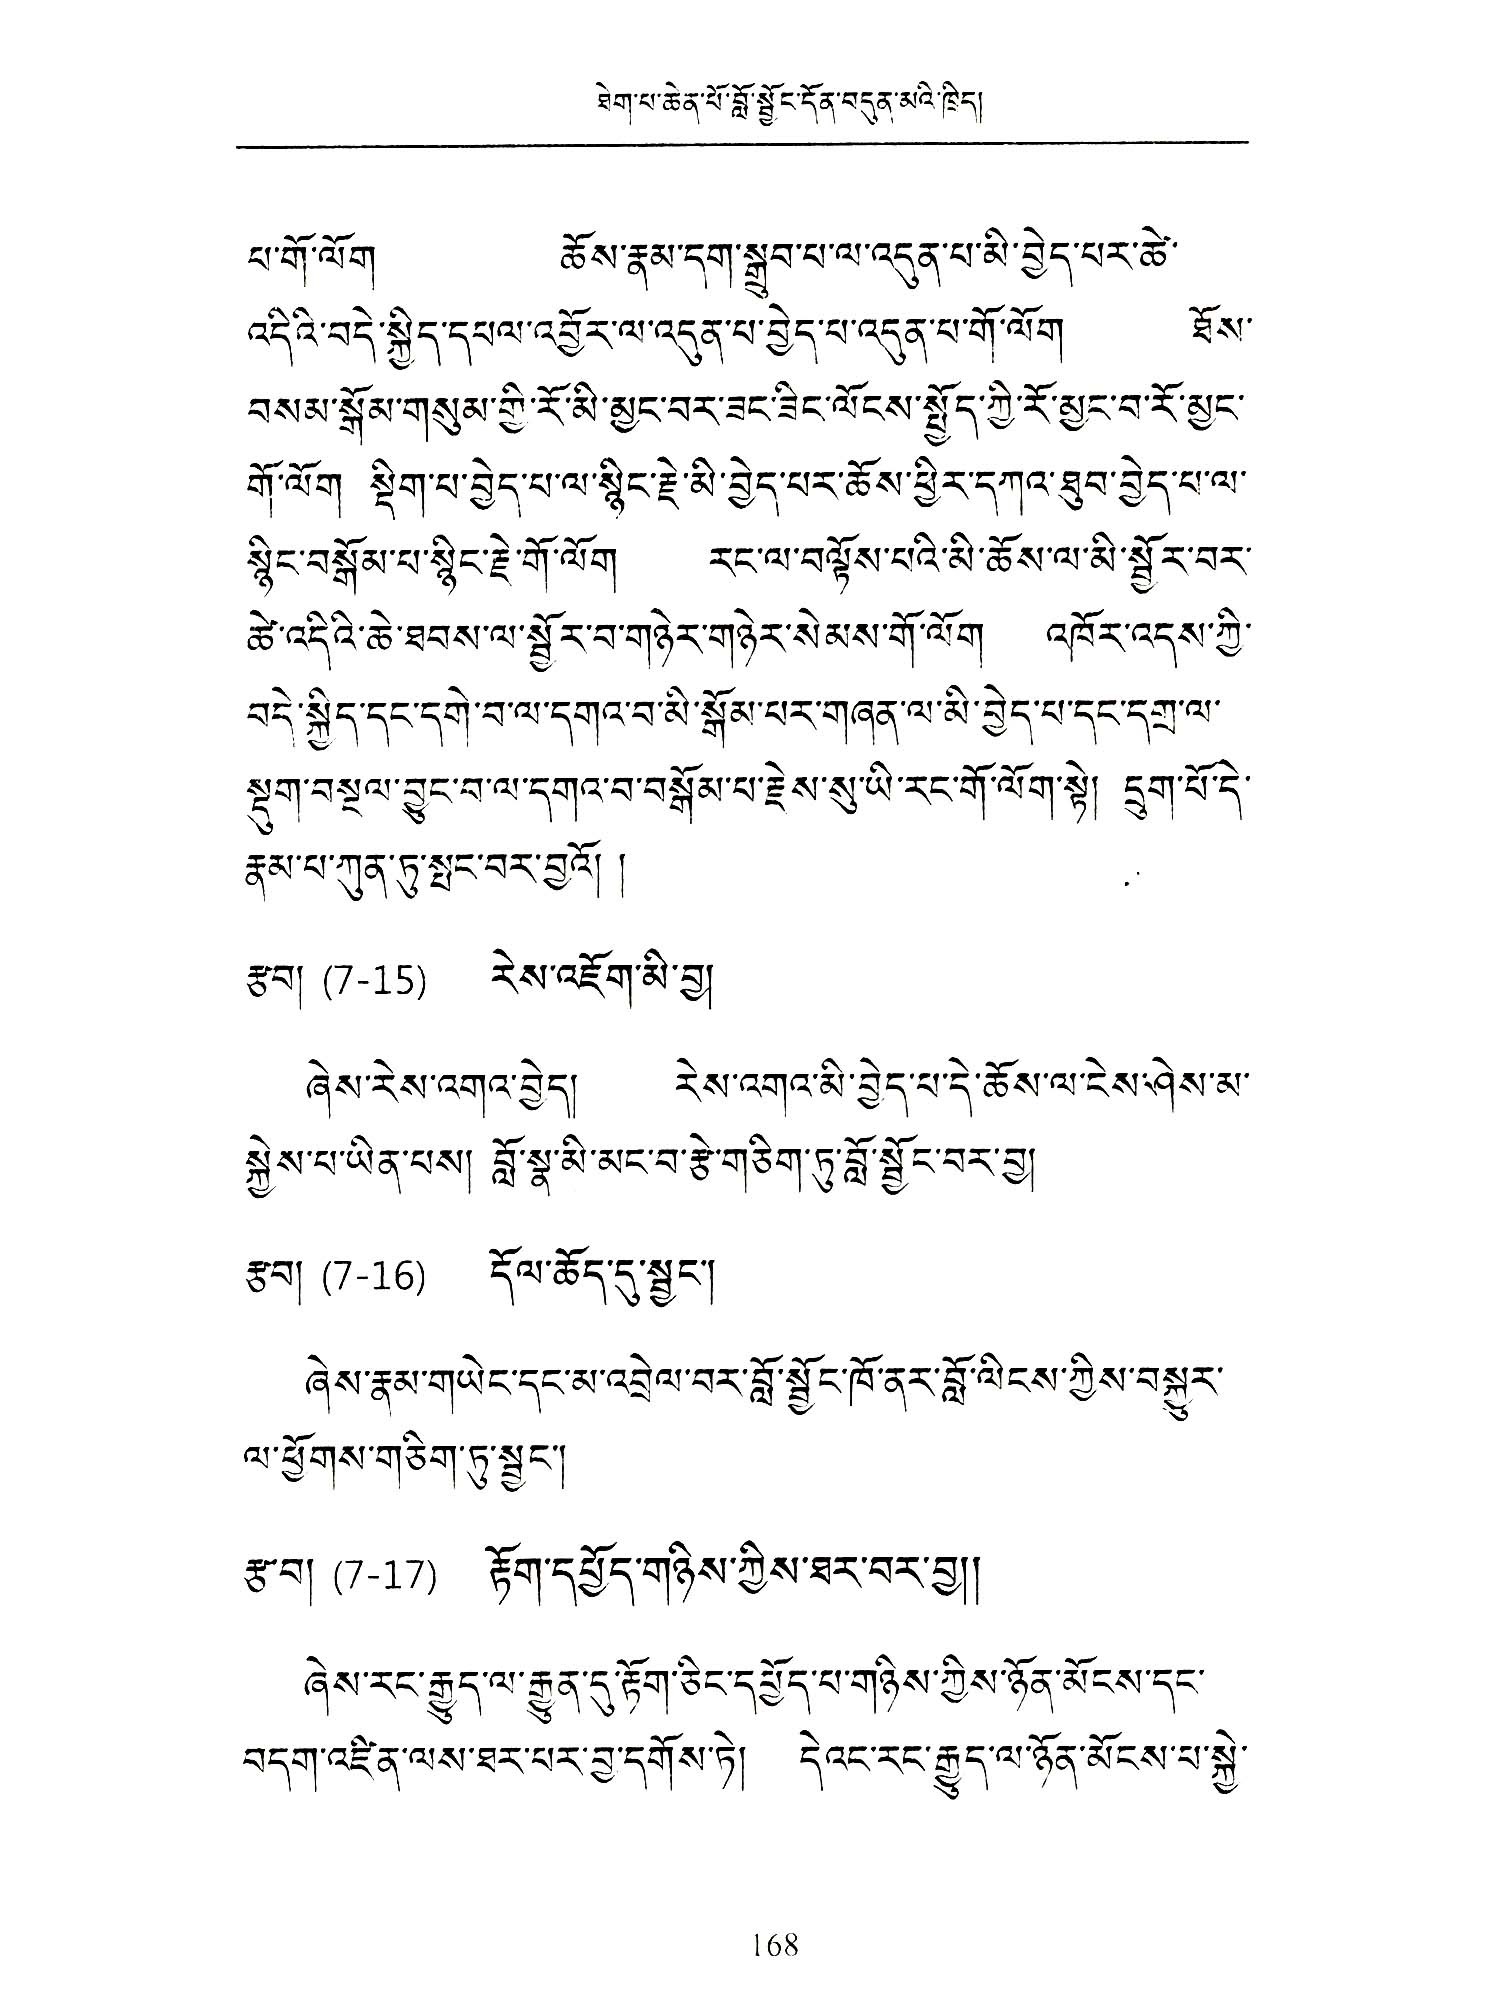 ཐེག་པ་ཆེན་པོ་བློ་སྦྱོང་དོན་བདུན་མའི་ཁྲིད།
པ་གོ་ལོག ཆོས་རྣམ་དག་སྒྲུབ་པ་ལ་འདུན་པ་མི་བྱེད་པར་ཚེ་
འདིའི་བདེ་སྐྱིད་དཔལ་འབྱོར་ལ་འདུན་པ་བྱེད་པ་འདུན་པ་གོ་ལོག ཐོས་
བསམ་སྒོམ་གསུམ་གྱི་རོ་མི་མྱང་བར་ཟང་ཟིང་ལོངས་སྤྱོད་ཀྱི་རོ་མྱང་བ་རོ་མྱང་
གོ་ལོག སྡིག་པ་བྱེད་པ་ལ་སྙིང་རྗེ་མི་བྱེད་པར་ཆོས་ཕྱིར་དཀའ་ཐུབ་བྱེད་པ་ལ་
སྙིང་བསྒོམ་པ་སྙིང་རྗེ་གོ་ལོག རང་ལ་བལྟོས་པའི་མི་ཆོས་ལ་མི་སྦྱོར་བར་
ཚེ་འདིའི་ཆེ་ཐབས་ལ་སྦྱོར་བ་གཉེར་གཉེར་སེམས་གོ་ལོག འཁོར་འདས་ཀྱི་
བདེ་སྐྱིད་དང་དགེ་བ་ལ་དགའ་བ་མི་སྒོམ་པར་གཞན་ལ་མི་བྱེད་པ་དང་དགྲ་ལ་
སྡུག་བསྔལ་བྱུང་བ་ལ་དགའ་བ་བསྒོམ་པ་རྗེས་སུ་ཡི་རང་གོ་ལོག་སྟེ། དྲུག་པོ་དེ་
རྣམ་པ་ཀུན་ཏུ་སྤང་བར་བྱའོ། །
རྩ་བ། (7-15) རེས་འཇོག་མི་བྱ།
ཞེས་རེས་འགའ་བྱེད། རེས་འགའ་མི་བྱེད་པ་དེ་ཆོས་ལ་ངེས་ཤེས་མ་
སྐྱེས་པ་ཡིན་པས། བློ་སྣ་མི་མང་བ་རྩེ་གཅིག་ཏུ་བློ་སྦྱོང་བར་བྱ།
རྩ་བ། (7-16) དོལ་ཆོད་དུ་སྦྱང་།
ཞེས་རྣམ་གཡེང་དང་མ་འབྲེལ་བར་བློ་སྦྱོང་ཁོ་ནར་བློ་ལིངས་ཀྱིས་བསྐྱུར་
ལ་ཕྱོགས་གཅིག་ཏུ་སྦྱང་།
རྩ་བ། (7-17) རྟོག་དཔྱོད་གཉིས་ཀྱིས་ཐར་བར་བྱ།།
ཞེས་རང་རྒྱུད་ལ་རྒྱུན་དུ་རྟོག་ཅིང་དཔྱོད་པ་གཉིས་ཀྱིས་ཉོན་མོངས་དང་
བདག་འཛིན་ལས་ཐར་པར་བྱ་དགོས་ཏེ། དེའང་རང་རྒྱུད་ལ་ཉོན་མོངས་པ་སྐྱེ་
168